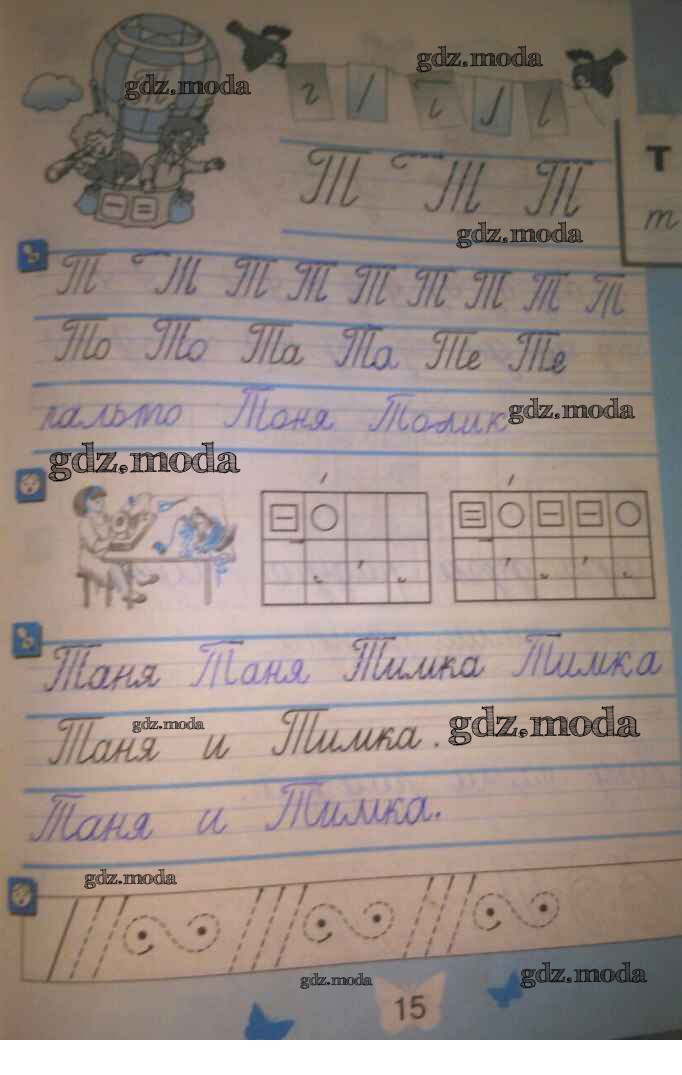 gdz.moda
gdz.moda
Т
т
Т Т Т
gdz.moda
Т Т Т Т Т Т Т Т Т
То То Та Та Те Те
пальто Тоня Толик gdz.moda
gdz.moda
Таня Таня Тимка Тимка
gdz.moda
Таня и Тимка. gdz.moda
Таня и Тимка.
gdz.moda
gdz.moda
gdz.moda
15